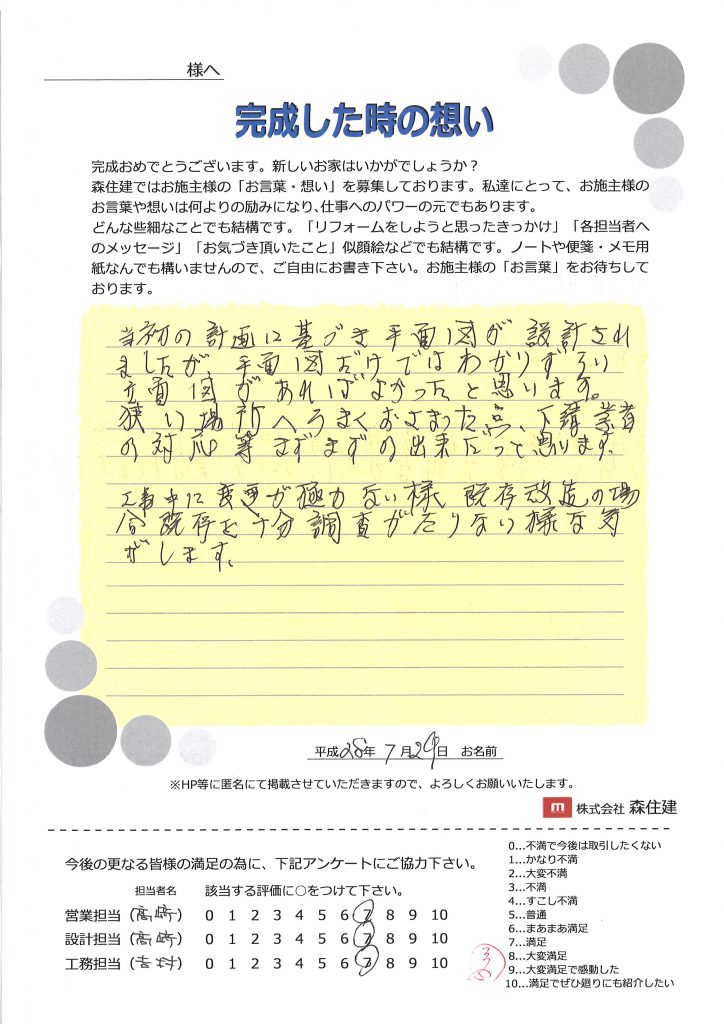 様へ
完成した時の想い
完成おめでとうございます。新しいお家はいかがでしょうか？
森住建ではお施主様の「お言葉・想い」を募集しております。私達にとって、お施主様の
お言葉や想いは何よりの励みになり、仕事へのパワーの元でもあります。
どんな些細なことでも結構です。「リフォームをしようと思ったきっかけ」「各担当者へ
のメッセージ」「お気づき頂いたこと」似顔絵などでも結構です。ノートや便箋・メモ用
紙なんでも構いませんので、ご自由にお書き下さい。お施主様の「お言葉」をお待ちして
おります。
当初の計画に基づき平面図が設計され
ましたが、平面図だけではわかりずらい
立面図があればよかったと思います。
狭い場所へうまくおさまった点、下請業者
の対応等まずまずの出来だったと思います。
工事中に変更が極力ない様、既存改造の場
合既存を十分調査がたりない様な気
がします。
平成28年 7月29日 お名前
※HP等に匿名にて掲載させていただきますので、よろしくお願いいたします。
m 株式会社 森住建
今後の更なる皆様の満足の為に、下記アンケートにご協力下さい。
担当者名 該当する評価に○をつけて下さい。
営業担当（高崎） 0 1 2 3 4 5 6 7 8 9 10
設計担当（高崎） 0 1 2 3 4 5 6 7 8 9 10
工務担当（吉村） 0 1 2 3 4 5 6 7 8 9 10
0…不満で今後は取引したくない
1…かなり不満
2…大変不満
3…不満
4…すこし不満
5…普通
6…まあまあ満足
7…満足
8…大変満足
9…大変満足で感動した
10…満足でぜひ廻りにも紹介したい